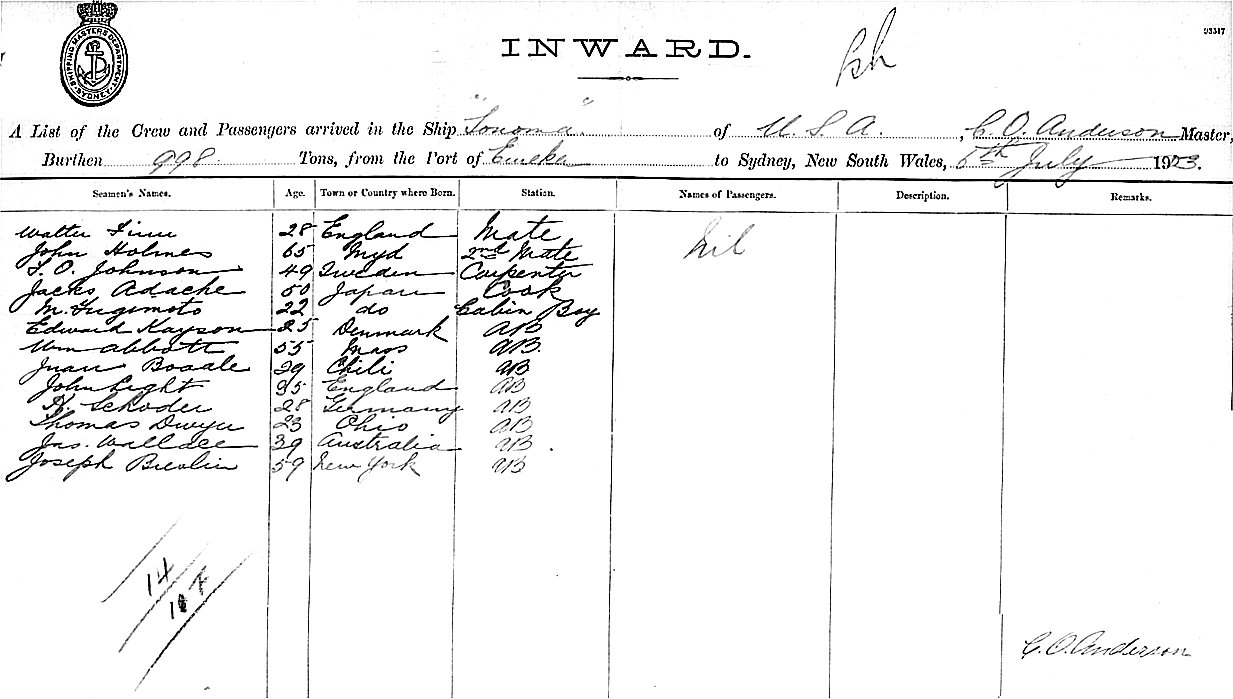 SHIPPING MASTERS DEPARTMENT SYDNEY
INWARD.
93517
A List of the Crew and Passengers arrived in the Ship "Sonoma" of U. S. A., C. O. Anderson Master,
Burthen 998 Tons, from the Port of Eureka to Sydney, New South Wales, July 1923.
Seamen's Names. Age. Town or Country where Born. Station. Names of Passengers. Description. Remarks.
Walter 28 England Mate Nil
John Holmes 65 Myd 2nd Mate
O. Johnson 49 Sweden Carpenter
Jacks Adache 50 Japan Cook
M. Fugimoto 22 do Cabin Boy
Edward Kayson 25 Denmark AB
Wm Abbott 55 Mass AB.
Juan 29 Chili AB
John Light 35 England AB
H. Schoder 28 Germany AB
Thomas Dwyer 23 Ohio AB
Jas. Wallace 39 Australia AB
Joseph Breslin 59 New York AB
14
C. O. Anderson